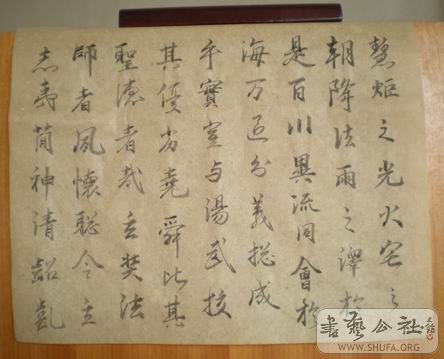 慧炬之光火宅之
朝降法雨之澤於
是百川異流同會於
海万區分義揔成
乎實豈与湯武挍
其優劣堯舜比其
聖德者哉玄奘法
師者夙懷聡令立
志夷簡神清齠齔
書藝公社
WWW.SHUFA.ORG